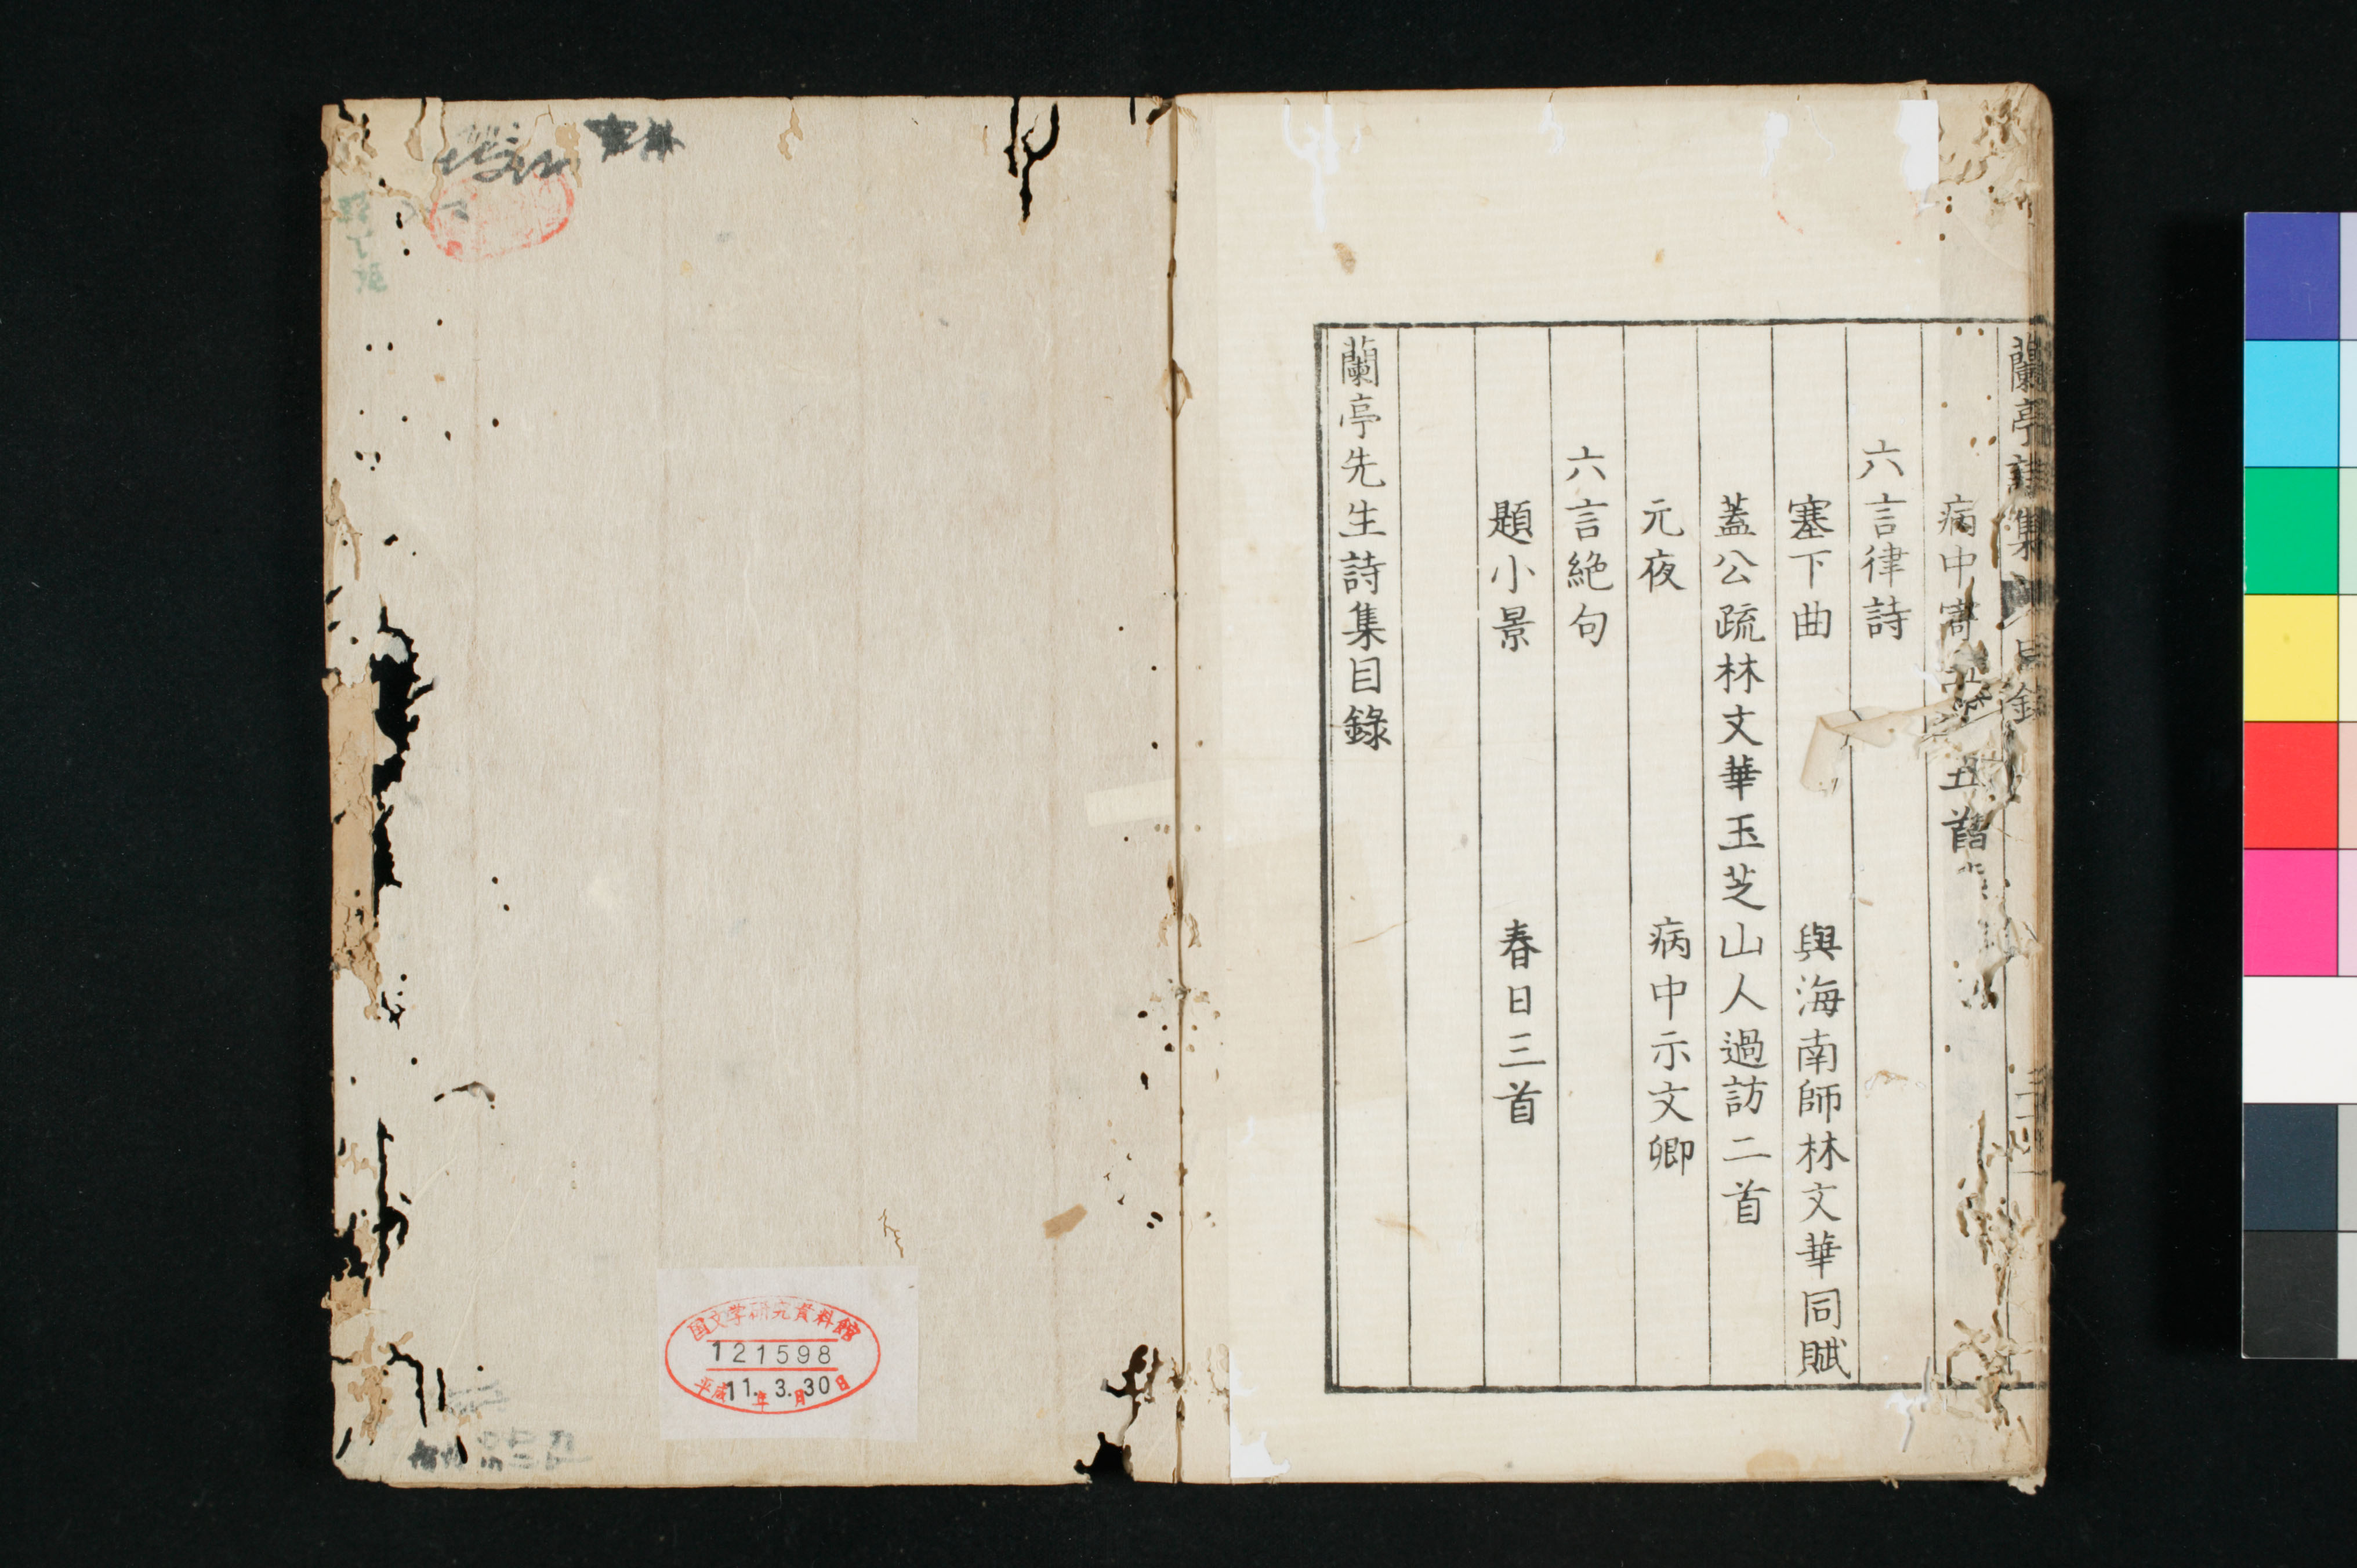 蘭亭詩集
目錄
病中寄
五首
六言律詩
塞下曲 與海南師林文華同賦
蓋公疏林文華玉芝山人過訪二首
元夜 病中示文卿
六言絶句
題小景 春日三首
蘭亭先生詩集目錄
国文学研究資料館
121598
平成11年3.月30日